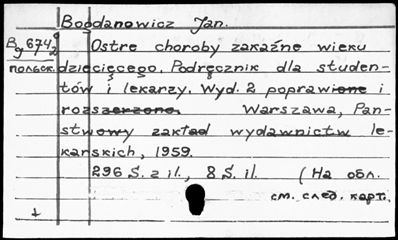 Bogdanowicz Jan.
B 674/2
g
польск.
Ostre choroby zakaźne wieku
dziecięcego. Podręcznik dla studen-
tów i lekarzy. Wyd. 2 poprawione i
rozszerzone. Warszawa, Pań-
stwowy zakład wydawnictw le-
karskich, 1959.
296 S. z il., 8 S. il. (На обл.
см. след. карт.